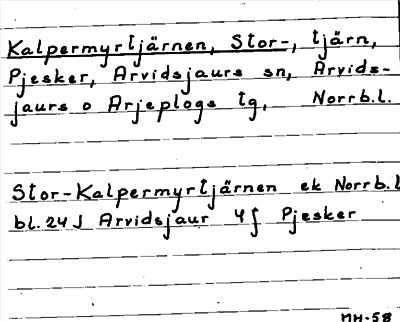 Kalpermyrtjärnen, Stor-, tjärn,
Pjesker, Arvidsjaurs sn, Arvids-
jaurs o Arjeplogs tg, Norrb.l.
Stor-Kalpermyrtjärnen ek Norrb.l
bl. 24J Arvidsjaur 4f Pjesker
MH-58